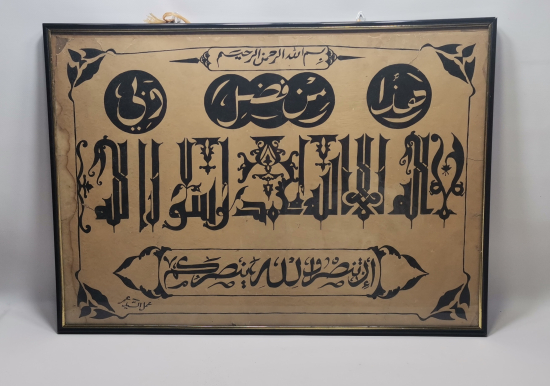 بسم الله الرحمن الرحيم
هذا من فضل ربي
لا اله الا الله محمد رسول الله
إن تنصروا الله ينصركم